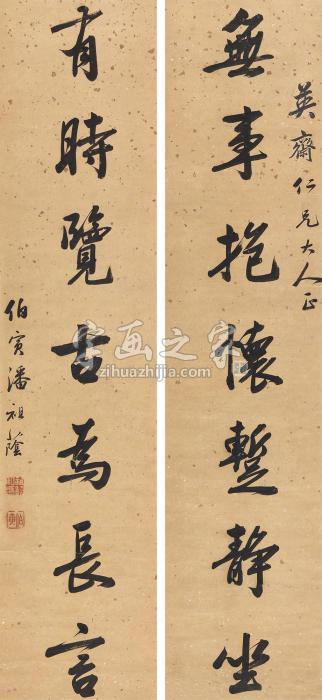 英齋仁兄大人正
無事抱懷蹔靜坐
有時覽古為長言
伯寅潘祖蔭
字画之家
zihuazhijia.com